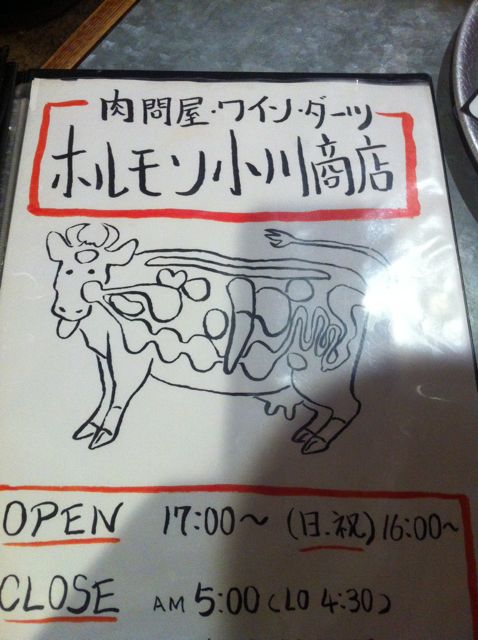 肉問屋・ワイン・ダーツ
ホルモン小川商店
OPEN 17:00〜 (日.祝)16:00〜
CLOSE AM 5:00(LO 4:30)